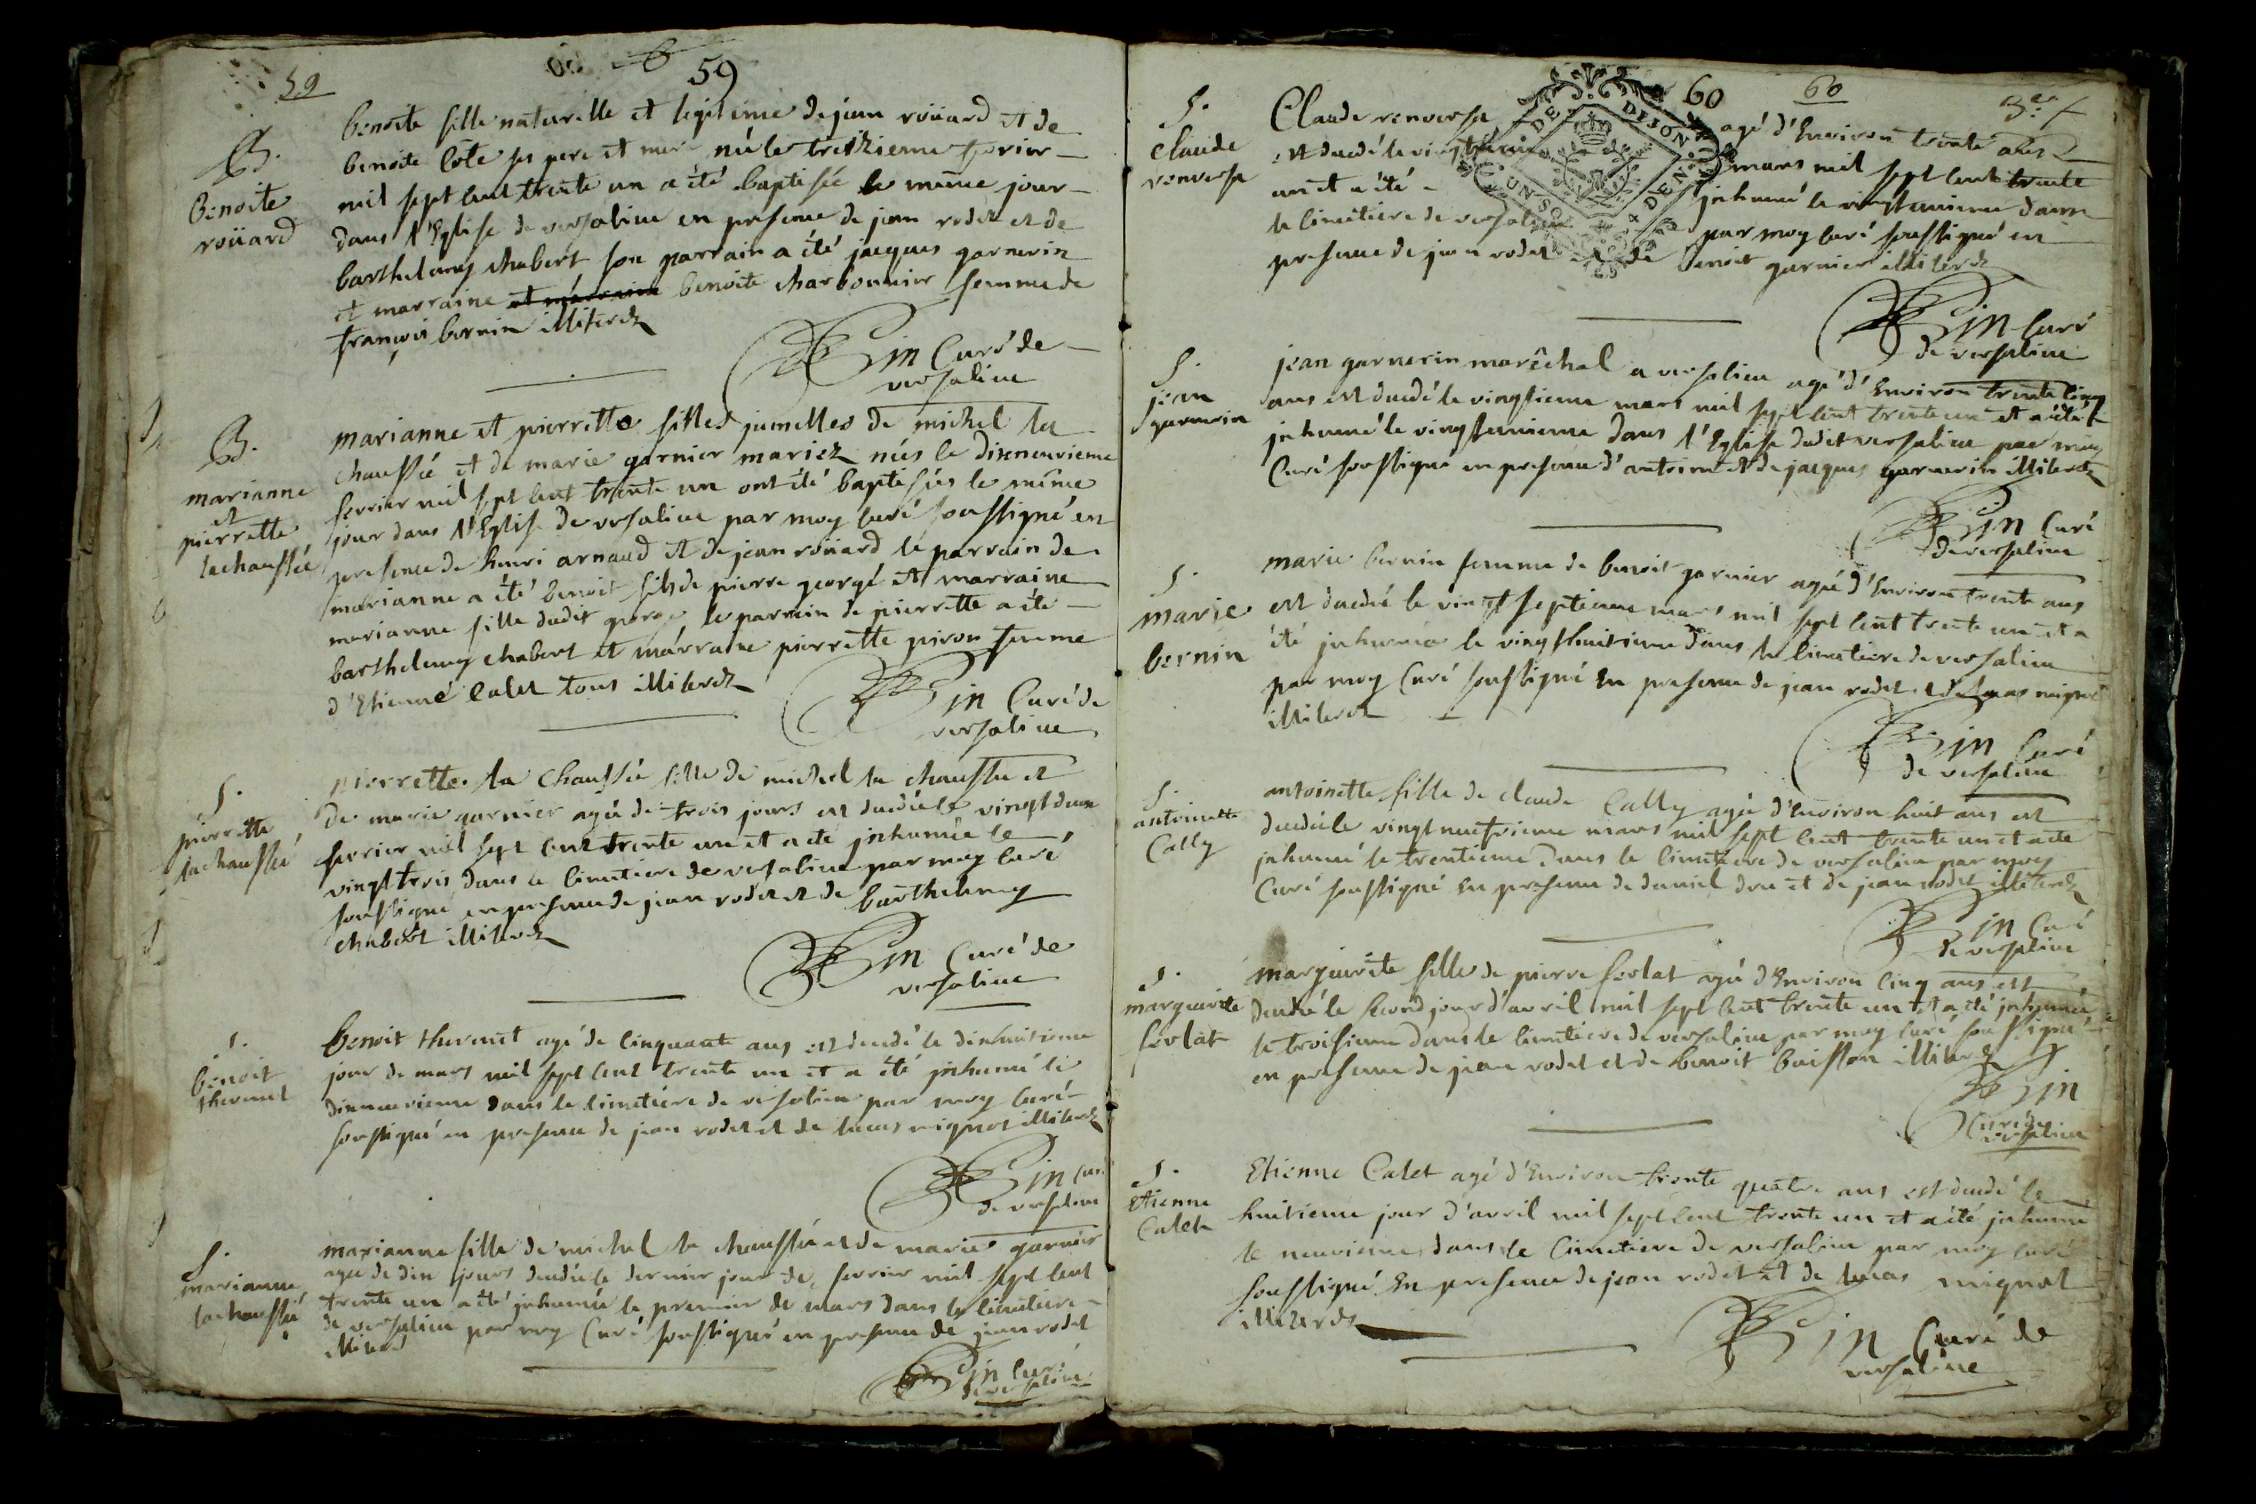 59
59
B.
Benoite
roüard
benoite fille naturelle et legitime de jean roüard et de
benoite Cote ses pere et mere née le treizieme fevrier
mil sept cent trente un a été baptisée le même jour
dans l'Eglise de versalieu en presence de jean rodet et de
barthelemy chabert son parrain a été jacques garnerin
et marraine et marraine benoite charbonnier femme de
françois bernin illiterez
Curé de
versalieu
B.
marianne
et
pierrette
lachaussée
marianne et pierrette filles jumelles de michel la
chaussée et de marie garnier mariez nées le dixneuvieme
fevrier mil sept cent trente un ont été baptisées le même
jour dans l'Eglise de versalieu par moy curé soussigné en
presence de henri arnaud et de jean roüard le parrain de
marianne a été benoit fils de pierre george et marraine
marianne fille dudit george le parrain de pierrette a été
barthelemy chabert et marraine pierrette piron femme
d'Etienne Calet tous illiterez
Curé de
versalieu
S.
pierrette
lachaussée
pierrette la chaussée fille de michel la chaussée et
de marie garnier agée de trois jours est decedée le vingt deux
fevrier mil sept cent trente un et a été inhumée le
vingt trois dans le cimetiere de versalieu par moy curé
soussigné en presence de jean rodet et de barthelemy
chabert illiterez
Curé de
versalieu
S.
benoit
thevenet
benoit thevenet agé de cinquante ans est decedé le dixhuitieme
jour de mars mil sept cent trente un et a été inhumé le
dixneuvieme dans le cimetiere de versalieu par moy curé
soussigné en presence de jean rodet et de lucas mignot illiterez
de versalieu
S.
marianne
lachaussée
marianne fille de michel la chaussée et de marie garnier
agée de dix jours decedée le dernier jour de fevrier mil sept cent
trente un a été inhumée le premier de mars dans le cimetiere
de versalieu par moy Curé soussigné en presence de jean rodet
illiteré
Curé
de versalieu
60
60
DE DIJON
UN SOL 4 DEN
S.
Claude
renversa
Claude renversa agé d'Environ trente ans
est decedé le vingtieme mars mil sept cent trente
un et a été inhumé le vingtunieme dans
le cimetiere de versalieu par moy curé soussigné en
presence de jean rodet et de benoit garnier illiterez
Curé
de versalieu
S.
jean
garnerin
jean garnerin marêchal a versalieu agé d'Environ trente cinq
ans est decedé le vingtieme mars mil sept cent trente un et a été
inhumé le vingtunieme dans l'Eglise dudit versalieu par moy
Curé soussigné en presence d'antoine et de jacques garnerin illiterez
Curé
de versalieu
S.
marie
bernin
marie bernin femme de benoit garnier agée d'Environ trente ans
est decedée le vingt septieme mars mil sept cent trente un et a
été inhumée le vingthuitieme dans le cimetiere de versalieu
par moy Curé soussigné En presence de jean rodet et de lucas mignot
illiterez
Curé
de versalieu
S.
antoinette
Cally
antoinette fille de claude Cally agée d'Environ huit ans est
decedée le vingt neufvieme mars mil sept cent trente un et a été
inhumé le trentieme dans le cimetiere de versalieu par moy
Curé soussigné En presence de daniel et de jean rodet illiterez
Curé
de versalieu
S.
marguerite
feolat
marguerite fille de pierre feolat agée d'Environ cinq ans est
decedée le second jour d'avril mil sept cent trente un et a été inhumée
le troisieme dans le cimetiere de versalieu par moy curé soussigné
en presence de jean rodet et de benoit buisson illiterez
Curé de
versalieu
S.
Etienne
Calet
Etienne Calet agé d'Environ trente quatre ans est decedé le
huitieme jour d'avril mil sept cent trente un et a été inhumé
le neuvieme dans le cimetiere de versalieu par moy curé
soussigné En presence de jean rodet et de lucas mignot
illiterez
Curé de
versalieu